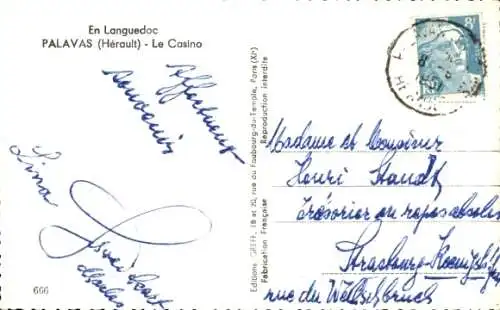 En Languedoc
PALAVAS (Hérault) - Le Casino
Affectueux
souvenirs
Lina
666
Editions GREFF, 18 et 20, rue du Faubourg-du-Temple, Paris (XIe)
Fabrication Française Reproduction interdite
8F
Madame et Monsieur
Henri Staudt
Trésorier en repos absolu
Strasbourg-Koenigshoffen
rue du Wettelbruch